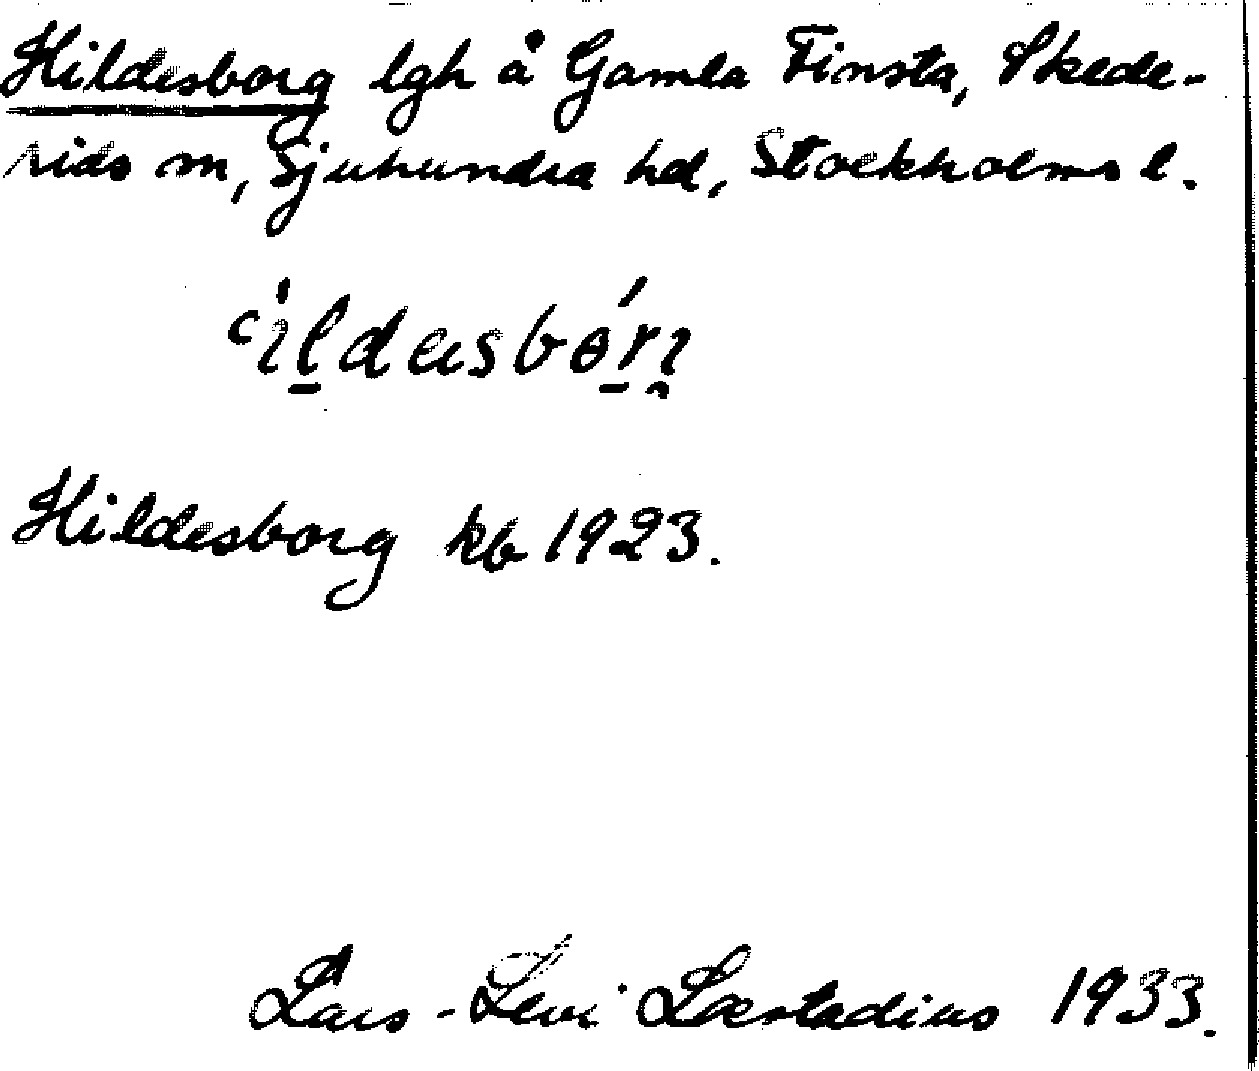 Hildesborg lgh å Gamla Finsta, Skede-
rids sn, Sjuhundra hd, Stockholms l.
Hildesborg kb 1923.
Lars-Levi Læstadius 1933.